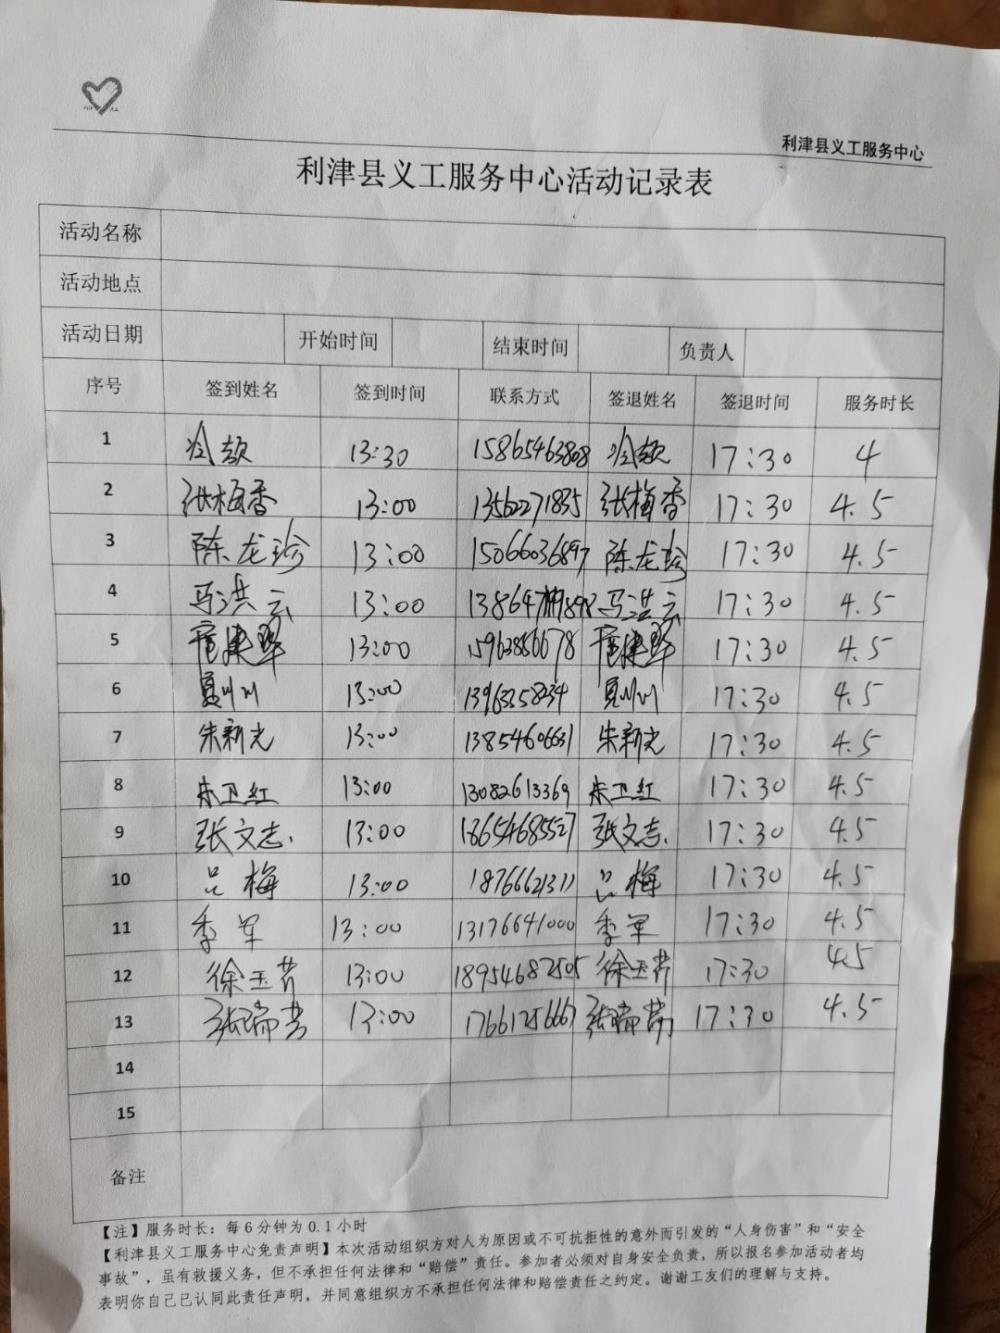 利津县义工服务中心
利津县义工服务中心活动记录表
活动名称
活动地点
活动日期 开始时间 结束时间 负责人
序号 签到姓名 签到时间 联系方式 签退姓名 签退时间 服务时长
1 冷款 13:30 15865463808 冷款 17:30 4
2 张梅香 13:00 13562271835 张梅香 17:30 4.5
3 陈龙珍 13:00 15066036897 陈龙珍 17:30 4.5
4 马洪云 13:00 马洪云 17:30 4.5
5 13:00 15963856678 17:30 4.5
6 13:00 17:30 4.5
7 朱新光 13:00 13854606631 朱新光 17:30 4.5
8 朱卫红 13:00 13082613369 朱卫红 17:30 4.5
9 张文志 13:00 18654685527 张文志 17:30 4.5
10 吕梅 13:00 18766621311 吕梅 17:30 4.5
11 季军 13:00 13176641000 季军 17:30 4.5
12 徐玉芹 13:00 18954682505 徐玉芹 17:30 4.5
13 张瑞芳 13:00 17661256667 张瑞芳 17:30 4.5
14
15
备注
【注】服务时长：每6分钟为0.1小时
【利津县义工服务中心免责声明】本次活动组织方对人为原因或不可抗拒性的意外而引发的“人身伤害”和“安全
事故”，虽有救援义务，但不承担任何法律和“赔偿”责任。参加者必须对自身安全负责，所以报名参加活动者均
表明你自己已认同此责任声明，并同意组织方不承担任何法律和赔偿责任之约定。谢谢工友们的理解与支持。